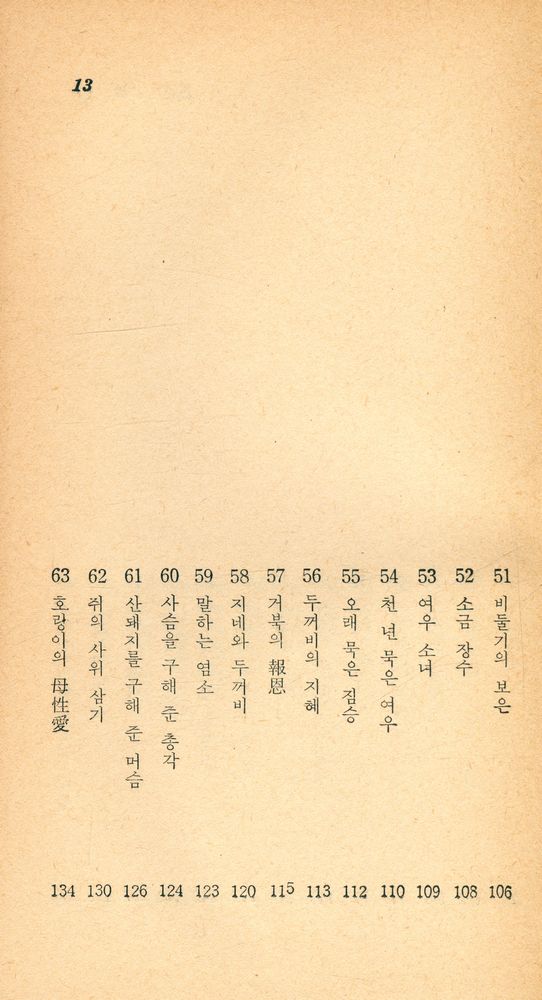 13
51 비둘기의 보은 106
52 소금 장수 108
53 여우 소녀 109
54 천 년 묵은 여우 110
55 오래 묵은 짐승 112
56 두꺼비의 지혜 113
57 거북의 報恩 115
58 지네와 두꺼비 120
59 말하는 염소 123
60 사슴을 구해 준 총각 124
61 산돼지를 구해 준 머슴 126
62 쥐의 사위 삼기 130
63 호랑이의 母性愛 134